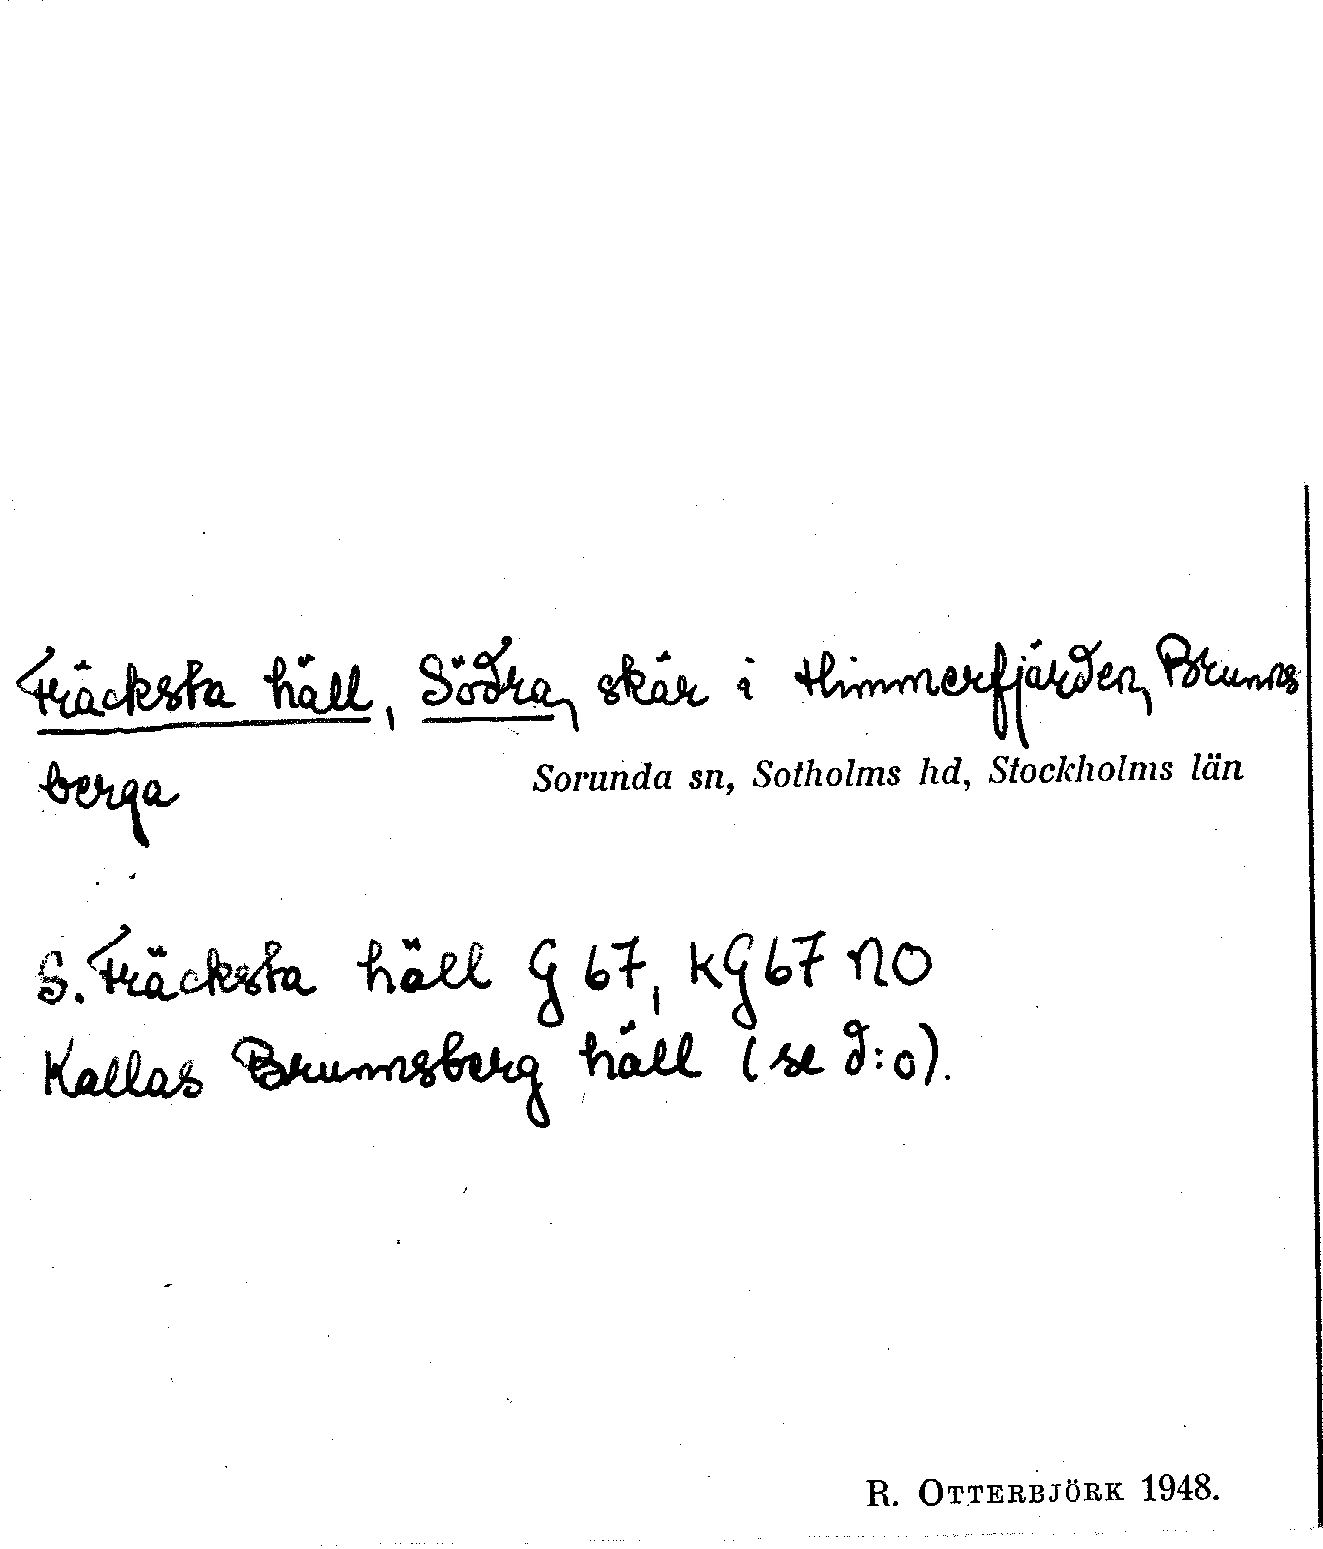 Fräcksta häll, Södra, skär i Himmerfjärden, Brunns
berga
Sorunda sn, Sotholms hd, Stockholms län
S. Fräcksta häll G 67, KG 67 NO
Kallas Brunnsberg häll (se d:o).
R. OTTERBJÖRK 1948.